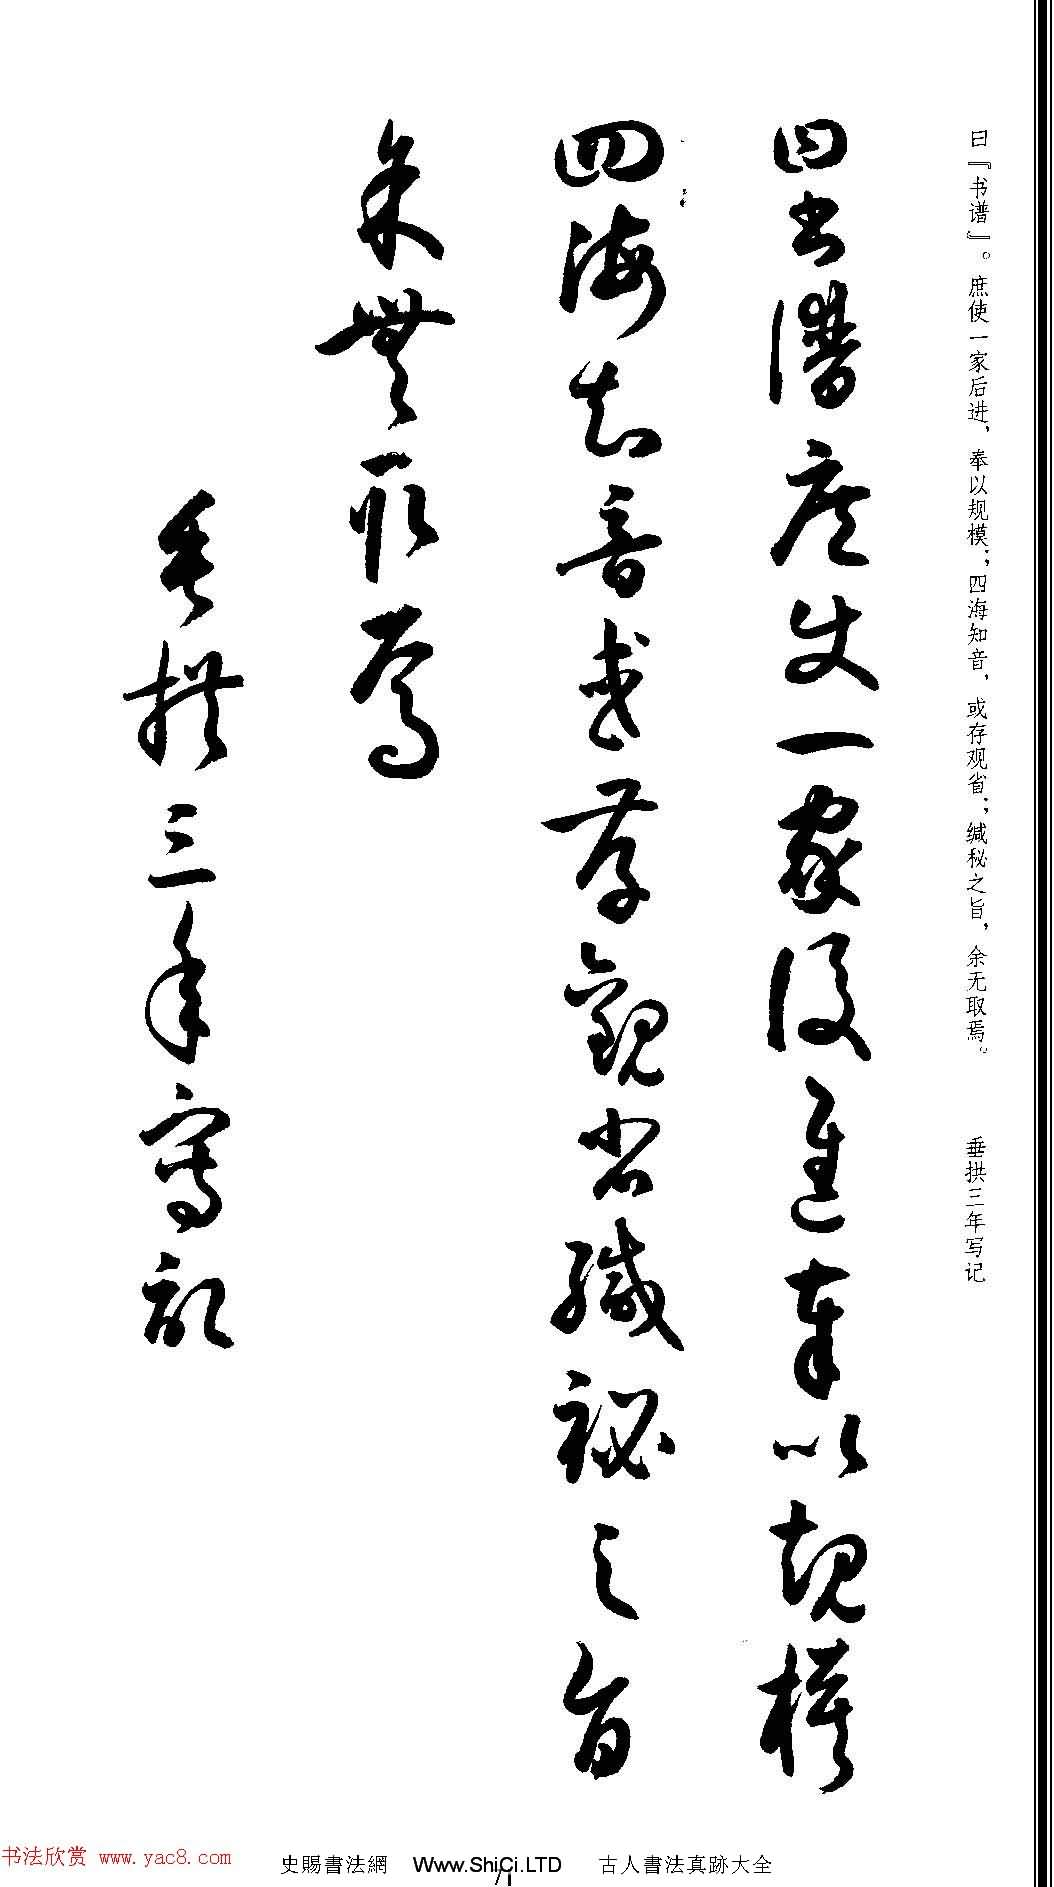 曰『书谱』。庶使一家后进，奉以规模；四海知音，或存观省；缄秘之旨，余无取焉。 垂拱三年写记
曰书谱庶使一家後进奉以规模
四海知音或存觀省缄祕之旨
余無取焉
垂拱三年寫記
书法欣赏 www.yac8.com
史賜書法網 Www.ShiCi.LTD 古人書法真跡大全
71